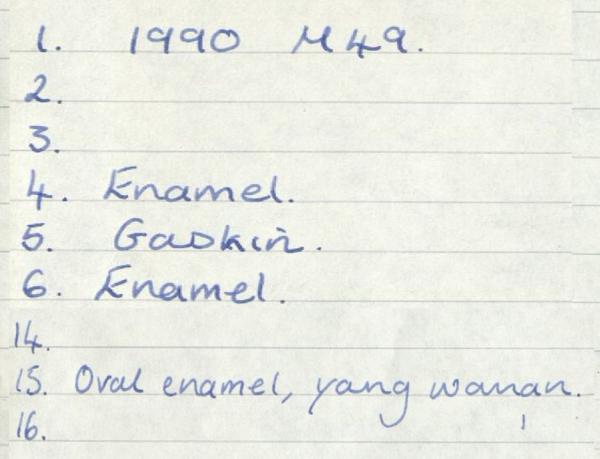 1. 1990 M49.
2.
3.
4. Enamel.
5. Gaskin.
6. Enamel.
14.
15. Oval enamel, yang wanan.
16.